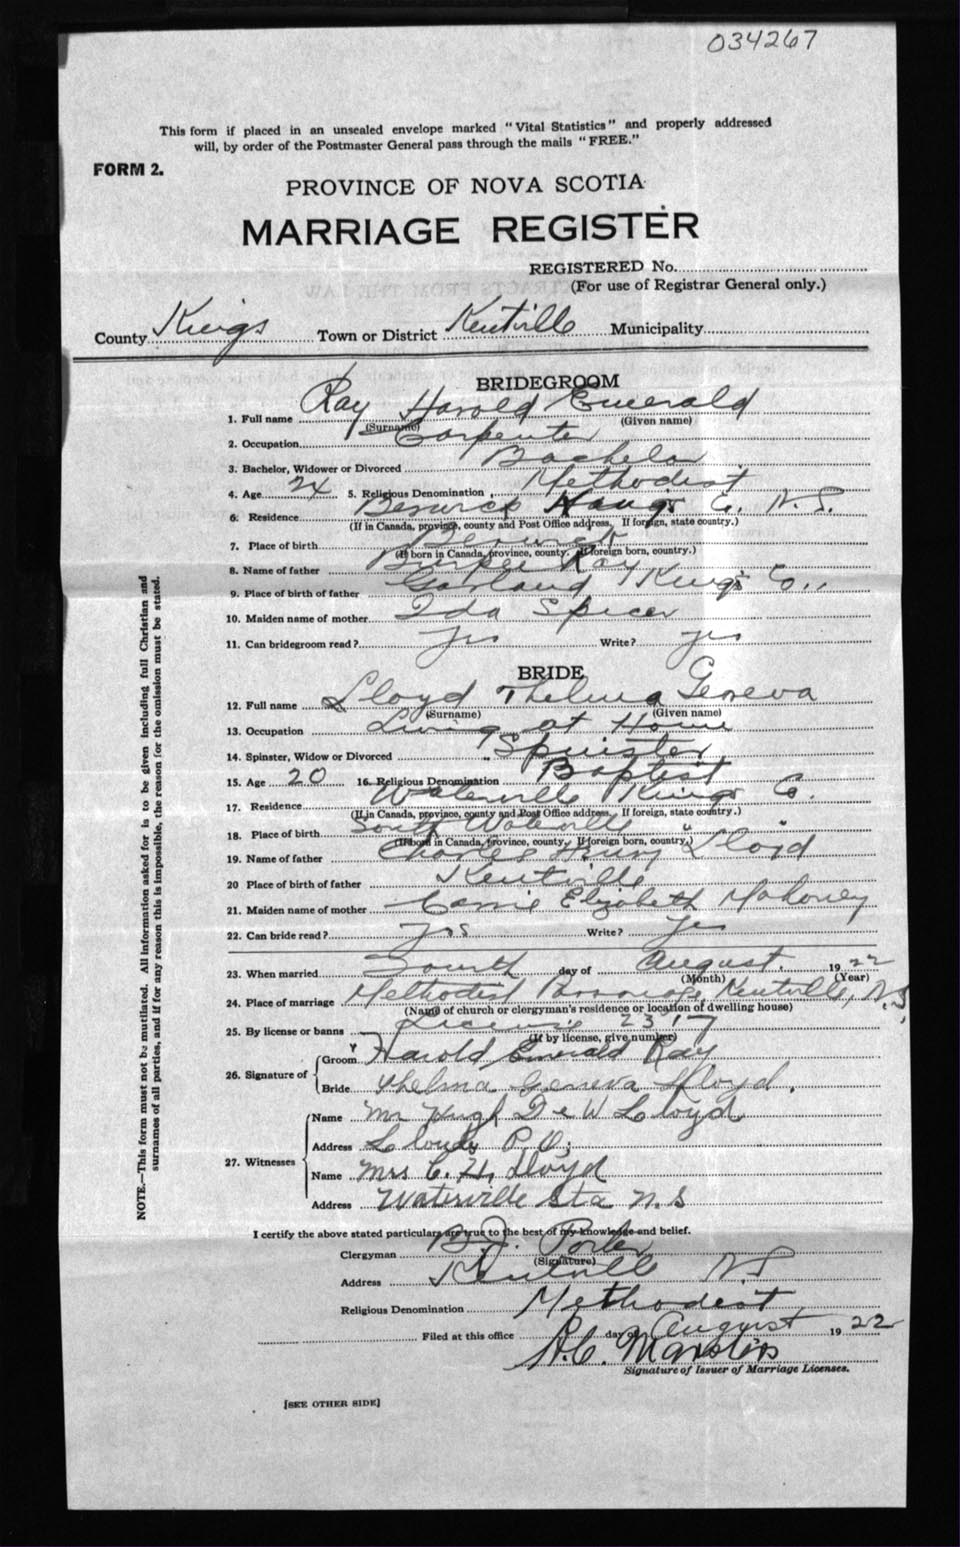 034267
This form if placed in an unsealed envelope marked "Vital Statistics" and properly addressed
will, by order of the Postmaster General pass through the mails "FREE."
FORM 2.
PROVINCE OF NOVA SCOTIA
MARRIAGE REGISTER
REGISTERED No.
(For use of Registrar General only.)
County Kings Town or District Kentville Municipality
BRIDEGROOM
1. Full name Ray Harold Emerald
(Surname) (Given name)
2. Occupation Carpenter
3. Bachelor, Widower or Divorced Bachelor
4. Age 24 5. Religious Denomination Methodist
6. Residence Berwick Kings Co. N.S.
(If in Canada, province, county and Post Office address. If foreign, state country.)
7. Place of birth Berwick
(If born in Canada, province, county. If foreign born, country.)
8. Name of father Burpee Ray
9. Place of birth of father Garland Kings Co.,
10. Maiden name of mother Ida Spicer
11. Can bridegroom read? yes Write? yes
BRIDE
12. Full name Lloyd Thelma Geneva
(Surname) (Given name)
13. Occupation Living at Home
14. Spinster, Widow or Divorced Spinster
15. Age 20 16. Religious Denomination Baptist
17. Residence Waterville Kings Co.
(If in Canada, province, county and Post Office address. If foreign, state country.)
18. Place of birth South Waterville "
(If born in Canada, province, county. If foreign born, country.)
19. Name of father Charles Henry Lloyd
20 Place of birth of father Kentville
21. Maiden name of mother Cassie Elizabeth Mahoney
22. Can bride read? yes Write? yes
23. When married Fourth day of August. 1922
(Month) (Year)
24. Place of marriage Methodist Parsonage, Kentville, N.S,
(Name of church or clergyman's residence or location of dwelling house)
25. By license or banns License 2317
(If by license, give number)
26. Signature of Groom Harold Emerald Ray
Bride Thelma Geneva Lloyd.
27. Witnesses Name Mr Hugh De W Lloyd
Address P.O.
Name Mrs C. H. Lloyd
Address Waterville Sta N.S
I certify the above stated particulars are true to the best of my knowledge and belief.
Clergyman B.J. Porter
(Signature)
Address Kentville N.S
Religious Denomination Methodist
Filed at this office day of August 1922
Signature of Issuer of Marriage Licenses.
[SEE OTHER SIDE]
NOTE.—This form must not be mutilated. All information asked for is to be given including full Christian and
surnames of all parties, and if for any reason this is impossible, the reason for the omission must be stated.